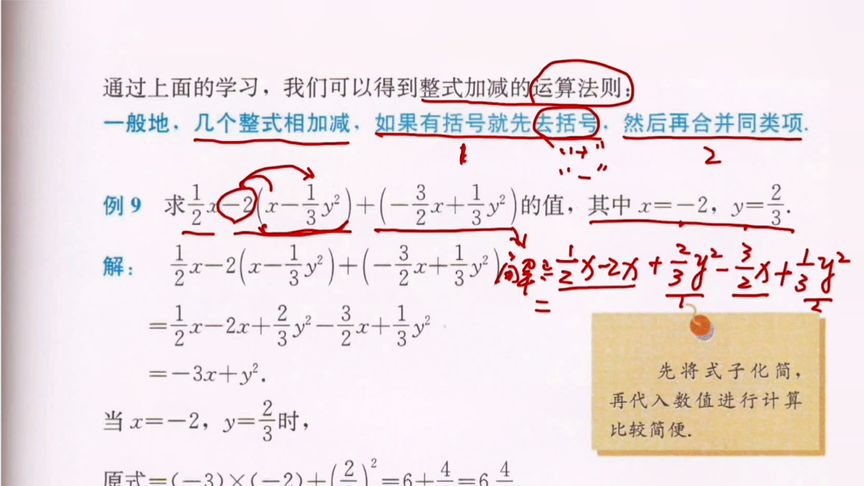 通过上面的学习，我们可以得到整式加减的运算法则：
一般地，几个整式相加减，如果有括号就先去括号，然后再合并同类项.
1 "+" "-" 2
例9 求\frac{1}{2}x-2(x-\frac{1}{3}y²)+(-\frac{3}{2}x+\frac{1}{3}y²)的值，其中 x=-2，y=\frac{2}{3}.
解： \frac{1}{2}x-2(x-\frac{1}{3}y²)+(-\frac{3}{2}x+\frac{1}{3}y²)
解：\frac{1}{2}x-2x+\frac{2}{3}y²-\frac{3}{2}x+\frac{1}{3}y²
=
=\frac{1}{2}x-2x+\frac{2}{3}y²-\frac{3}{2}x+\frac{1}{3}y²
=-3x+y².
先将式子化简，
再代入数值进行计算
比较简便.
当 x=-2，y=\frac{2}{3}时，
原式=(-3)×(-2)+(\frac{2}{3})²=6+\frac{4}{9}=6\frac{4}{9}